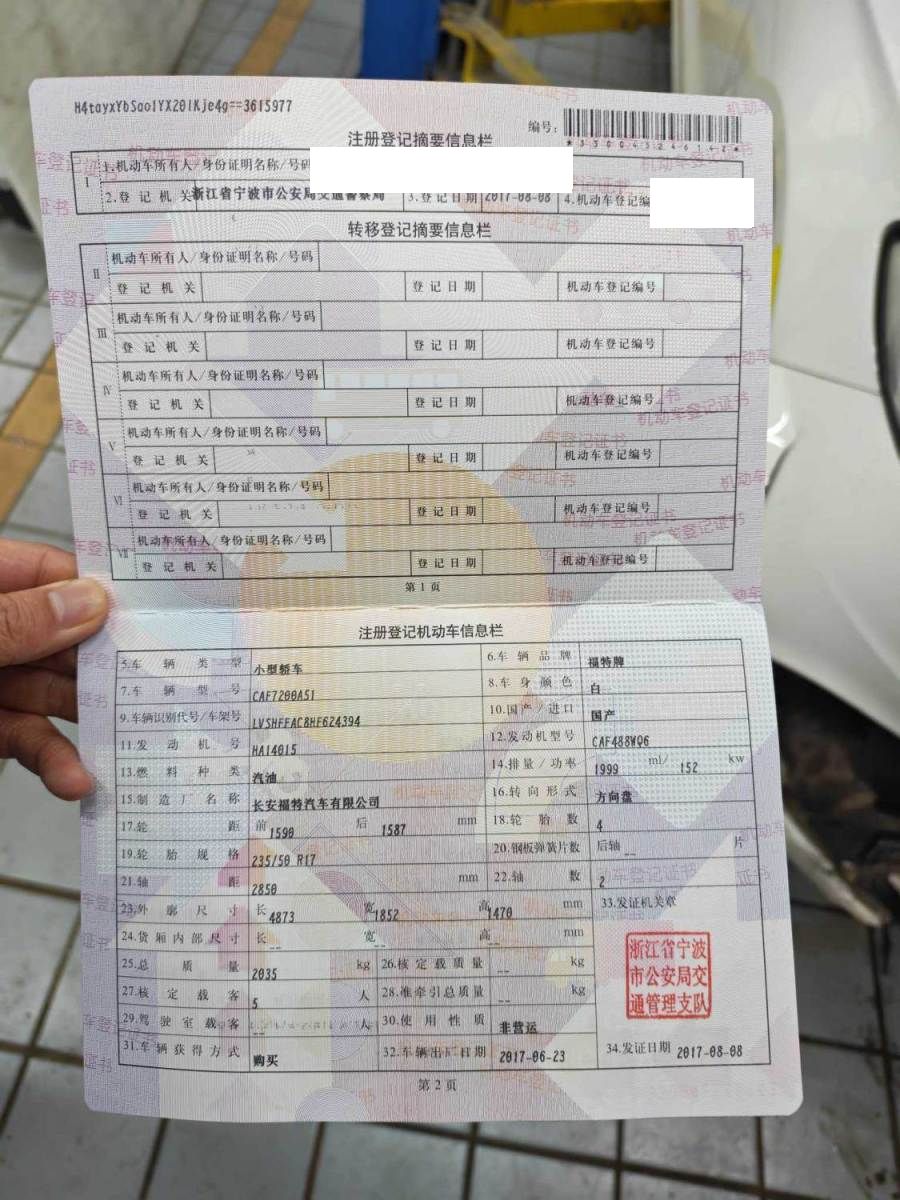 H4tayxYbSao1YX201Kje4g==3615977
编号:
注册登记摘要信息栏
I 1.机动车所有人/身份证明名称/号码
2.登记机关 浙江省宁波市公安局交通警察局 3.登记日期 2017-08-08 4.机动车登记编
转移登记摘要信息栏
II 机动车所有人/身份证明名称/号码
登记机关 登记日期 机动车登记编号
III 机动车所有人/身份证明名称/号码
登记机关 登记日期 机动车登记编号
IV 机动车所有人/身份证明名称/号码
登记机关 登记日期 机动车登记编号
V 机动车所有人/身份证明名称/号码
登记机关 登记日期 机动车登记编号
VI 机动车所有人/身份证明名称/号码
登记机关 登记日期 机动车登记编号
VII 机动车所有人/身份证明名称/号码
登记机关 登记日期 机动车登记编号
第1页
注册登记机动车信息栏
5.车辆类型 小型轿车 6.车辆品牌 福特牌
7.车辆型号 CAF7200A51 8.车身颜色 白
9.车辆识别代号/车架号 LVSHFFAC8HF624394 10.国产/进口 国产
11.发动机号 HA14015 12.发动机型号 CAF488WQ6
13.燃料种类 汽油 14.排量/功率 1999 ml/ 152 kw
15.制造厂名称 长安福特汽车有限公司 16.转向形式 方向盘
17.轮距 前 1590 后 1587 mm 18.轮胎数 4
19.轮胎规格 235/50 R17 20.钢板弹簧片数 后轴 -- 片
21.轴距 2850 mm 22.轴数 2
23.外廓尺寸 长 4873 宽 1852 高 1470 mm 33.发证机关章
24.货厢内部尺寸 长 -- 宽 -- 高 -- mm
25.总质量 2035 kg 26.核定载质量 -- kg
27.核定载客 5 人 28.准牵引总质量 -- kg
29.驾驶室载客 -- 人 30.使用性质 非营运
31.车辆获得方式 购买 32.车辆出厂日期 2017-06-23 34.发证日期 2017-08-08
浙江省宁波
市公安局交
通管理支队
第2页